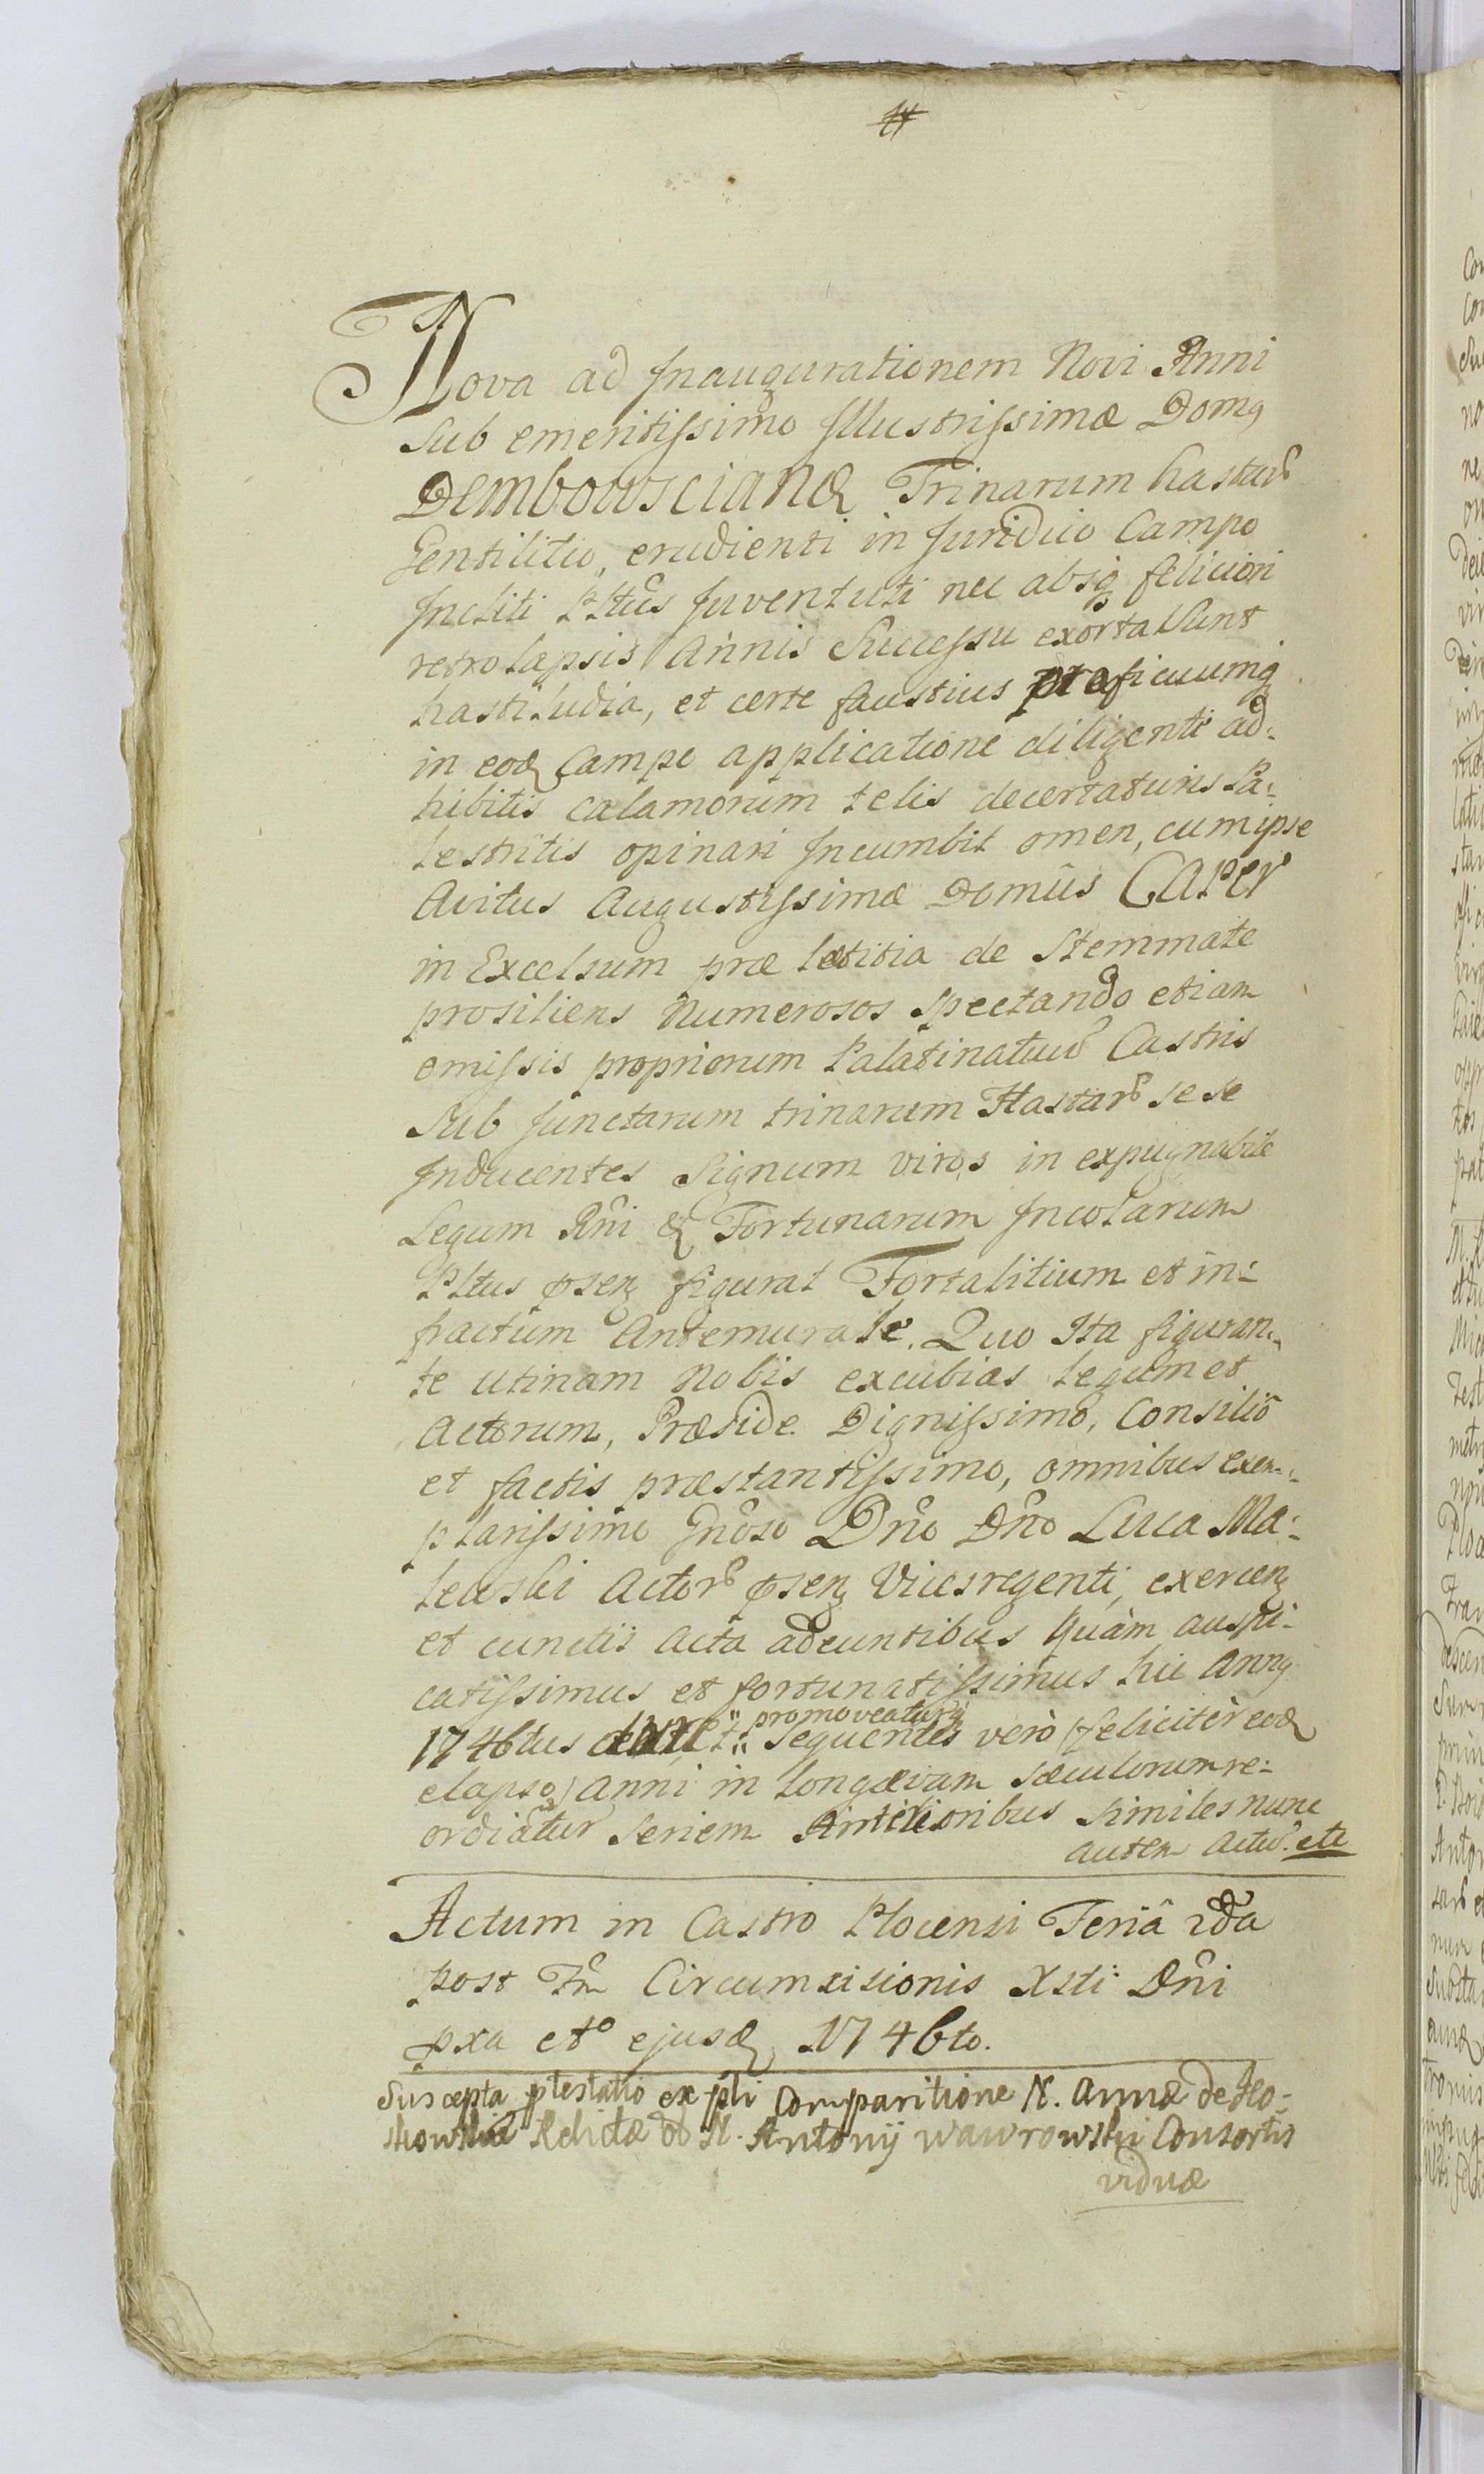 Nova ad Inaugurationem Novi Anni
Sub emeritissimo Illustrissimæ Domꝰ
DEMBOWSCIANÆ Trinarum hastarꝰ
Gentilitio, erudienti in Juridico Campo
Incliti Pltûs Juventuti nec absq̄ feliciori
retrolapsis Annis Successu exorta Sunt
hastiludia, et certe faustius proficuumq̄
in eod Campo applicatione diligenti ad:
hibitis calamorum telis decertaturis Pa:
lestritis opinari Incumbit omen, cum ipse
Avitus Augustissimæ Domûs CAPER
in Excelsum præ lætitia de Stemmate
prosiliens Numerosos Spectando etiam
emissis propriorum Palatinatuū Castris
Sub Junctarum trinarum Hastarꝰ sese
Inducentes Signum viros inexpugnabile
Legum Rñi & Fortunarum Incolarum
Pltus pseñ figurat Fortalitium et in:
fractum Antemurale. Quo Ita figuran:
te utinam Nobis excubias Legum et
Actorum, Præside Dignissimo, Consiliô
et factis præstantissimo, omnibus exem:
plarissimo Gñoso Dño Dño Luca Ma:
leuski Actorꝰ pseñ Vicesregenti, exerceñ
et cunctis Acta adeuntibus quàm auspi:
catissimus et fortunatissimus hic Annꝰ
promoveatur
1746tus Sequentes verò (feliciter eod
elapso) anni in longævam Sæculorum re:
ordiantur Seriem Anterioribus similes nunc
autem Actū. etc
Actum in Castro Plocensi Feriâ 2da
post Fm Circumcisionis Xsti Dñi
pxa Aº ejusd 1746to.
Suscepta ptestatio ex psti Comparitione N. Annæ de
Relictæ N. Antonij Wawrowski Consortis
viduæ